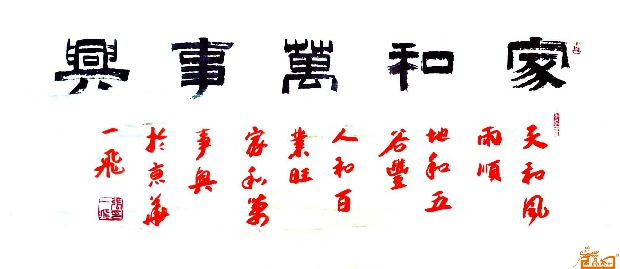 家和萬事興
天和風
雨順
地和五
谷豐
人和百
業旺
家和萬
事興
於京華
一飛